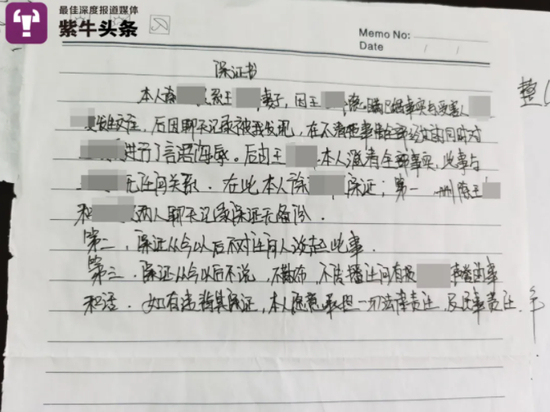 最佳深度报道媒体
紫牛头条
Memo No:
Date / /
保证书
本人徐 系王 妻子，因王 隐瞒已婚事实与受害人
交往，后因聊天记录被我发现，在不清楚事情全部经过前同时对
进行了言语侮辱。后由王 本人澄清全部事实，此事与
无任何关系．在此本人徐 保证：第一 删除王
和 两人聊天记录保证无备份．
第二．保证从今以后不对任何人说起此事．
第三．保证从今以后不说，不散布，不传播任何有损 的事
和话．如有违背其保证，本人愿意承担一切法律责任，及 责任．